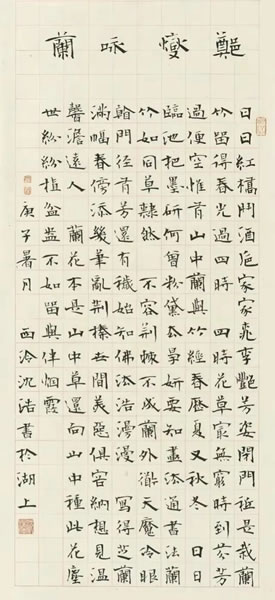 鄭燮咏蘭
日日紅橋鬥酒卮家家桃李艷芳姿閉門祗是栽蘭
竹留得春光過四時 四時花草最無窮時到芬芳
過便空惟有山中蘭與竹經春歷夏又秋冬 日日
臨池把墨研何曾粉黛去爭妍要知畫法通書法蘭
竹如同草隸然 不容荊棘不成蘭外道天魔冷眼
看門徑有芳還有穢始知佛法浩漫漫 寫得芝蘭
滿幅春傍添幾筆亂荊榛世間美惡俱容納想見溫
馨澹遠人 蘭花本是山中草還向山中種此花塵
世紛紛植盆盎不如留與伴烟霞
庚子暑月 西泠沈浩書於湖上